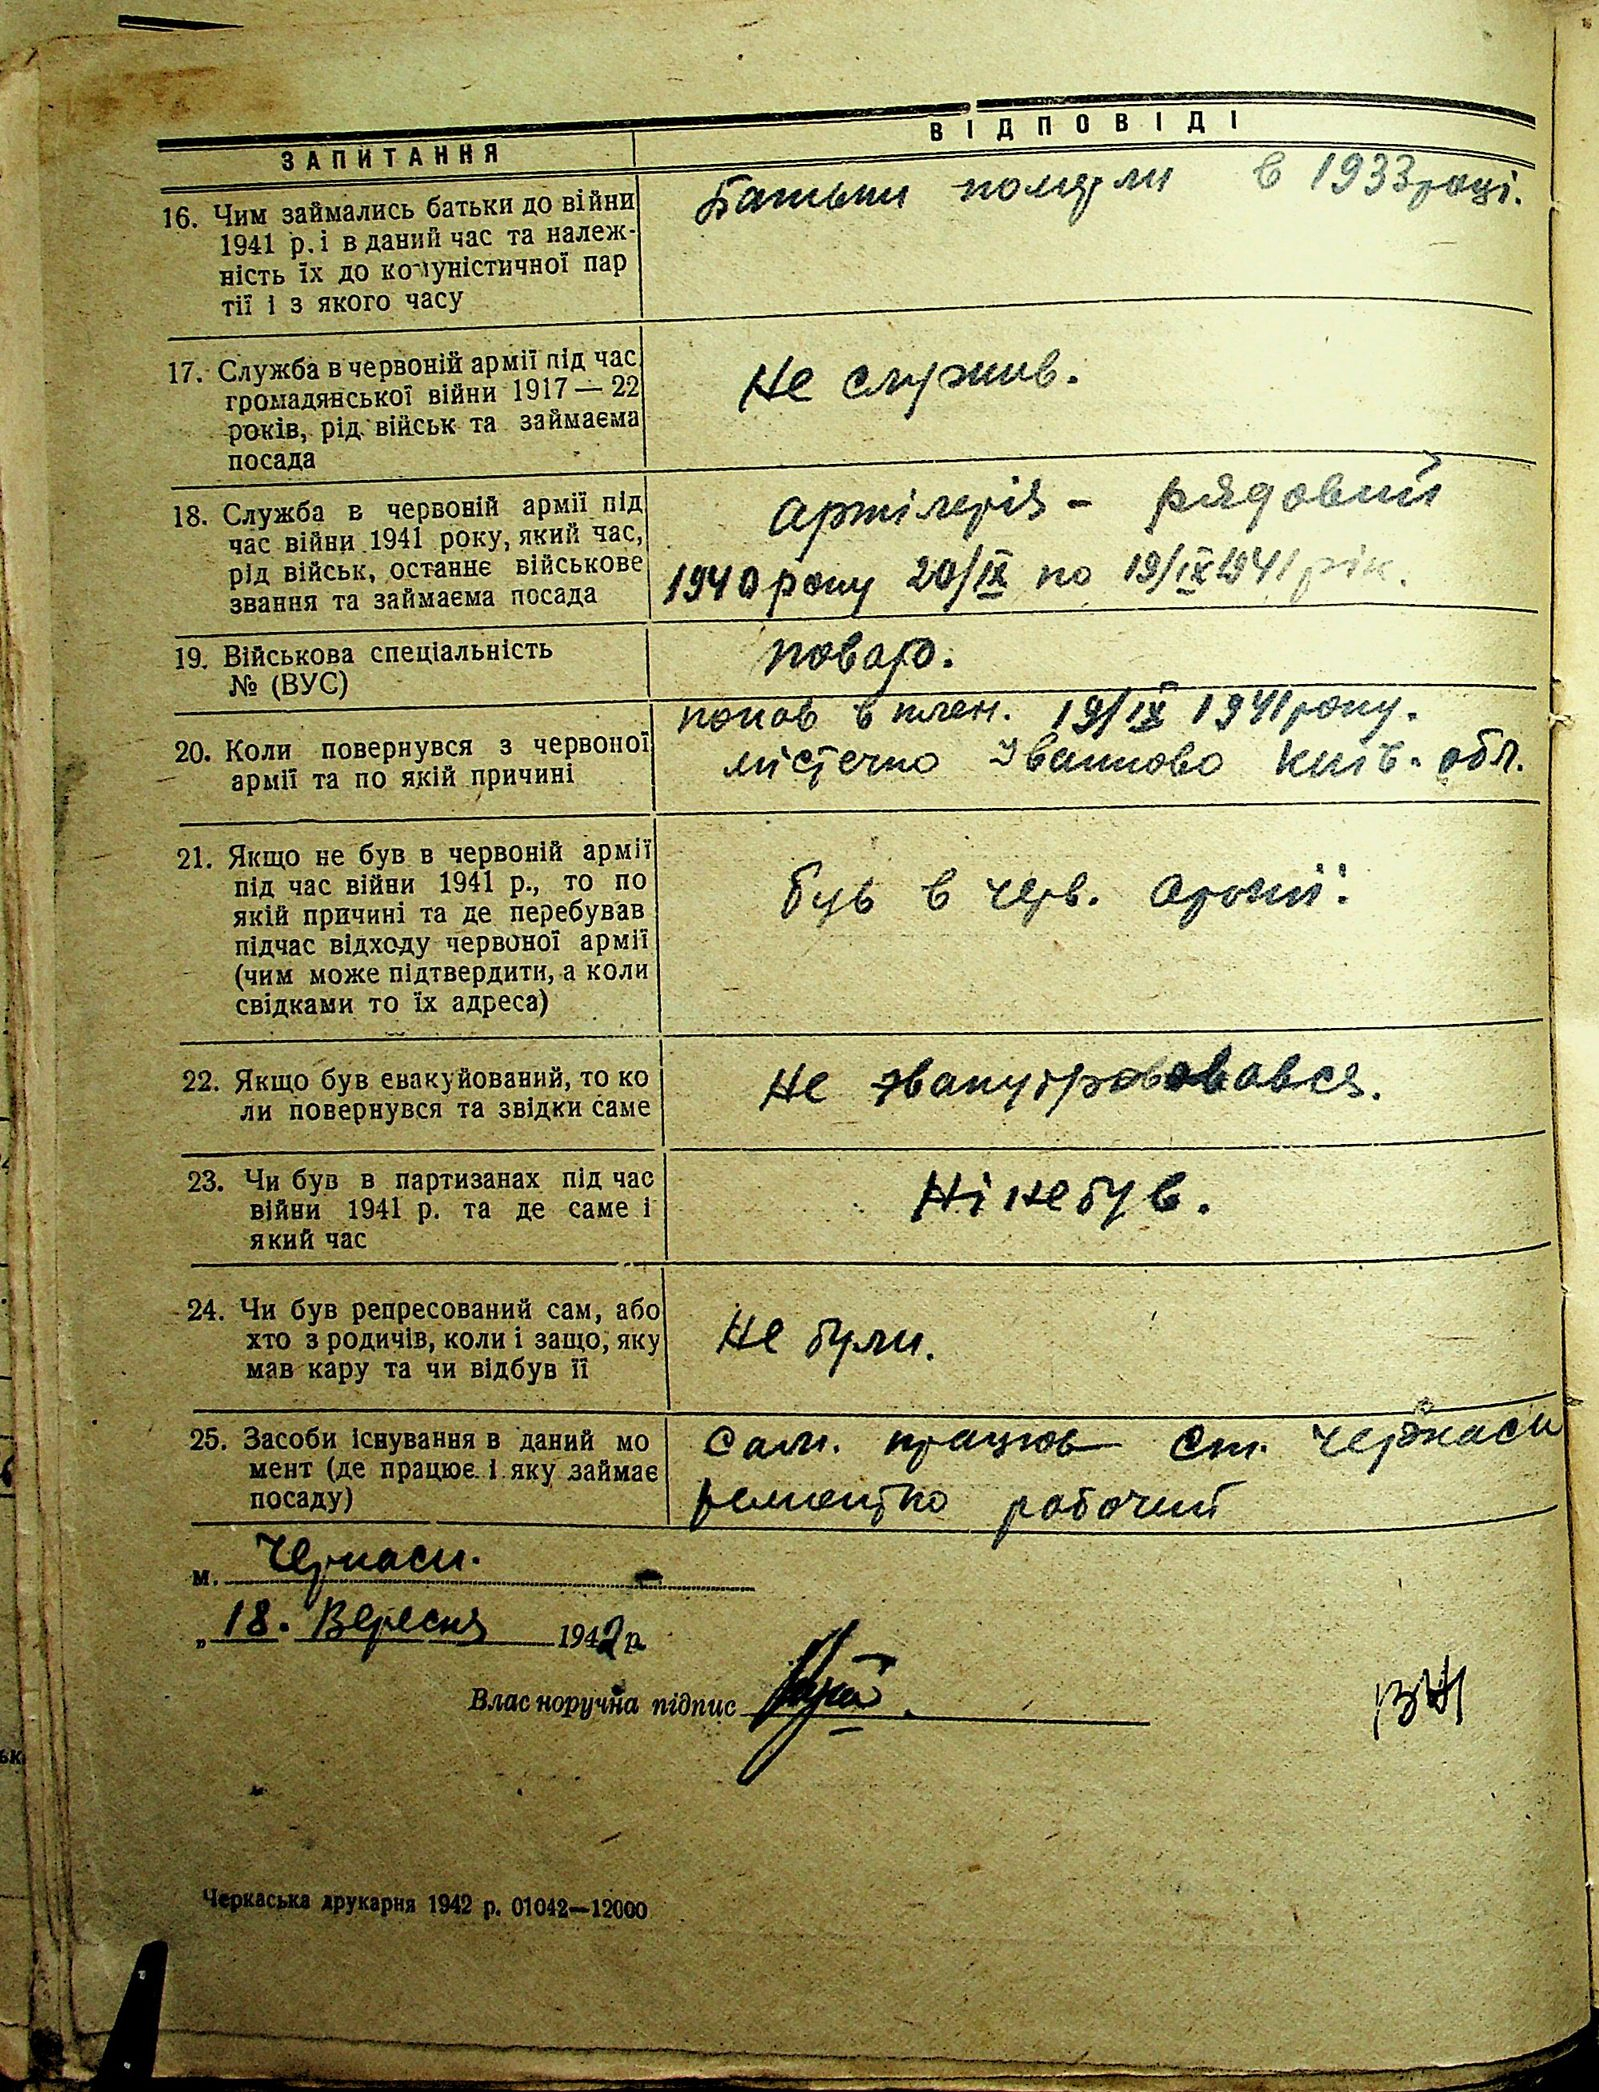 ЗАПИТАННЯ
ВІДПОВІДІ
16. Чим займались батьки до війни
1941 р. і в даний час та належ-
ність їх до комуністичної пар
тії і з якого часу
Батьки померли в 1933 році.
17. Служба в червоній армії під час
громадянської війни 1917 — 22
років, рід військ та займаєма
посада
Не служив.
18. Служба в червоній армії під
час війни 1941 року, який час,
рід військ, останнє військове
звання та займаєма посада
Артілерія – рядовий
1940 року 20/ІХ по 19/ІХ 1941 рік.
19. Військова спеціальність
№ (ВУС)
повар.
20. Коли повернувся з червоної
армії та по якій причині
попав в плен. 19/ІХ 1941 року.
містечко Іванково Київ. обл.
21. Якщо не був в червоній армії
під час війни 1941 р., то по
якій причині та де перебував
підчас відходу червоної армії
(чим може підтвердити, а коли
свідками то їх адреса)
був в черв. армії.
22. Якщо був евакуйований, то ко
ли повернувся та звідки саме
Не эвакуіровався.
23. Чи був в партизанах під час
війни 1941 р. та де саме і
який час
Ні не був.
24. Чи був репресований сам, або
хто з родичів, коли і защо, яку
мав кару та чи відбув її
Не були.
25. Засоби існування в даний мо
мент (де працює і яку займає
посаду)
Сам. працюв ст. Черкаси
рабочий
м. Черкаси.
„18. Вересня 1942 р.
Власноручна підпис
Черкаська друкарня 1942 р. 01042—12000